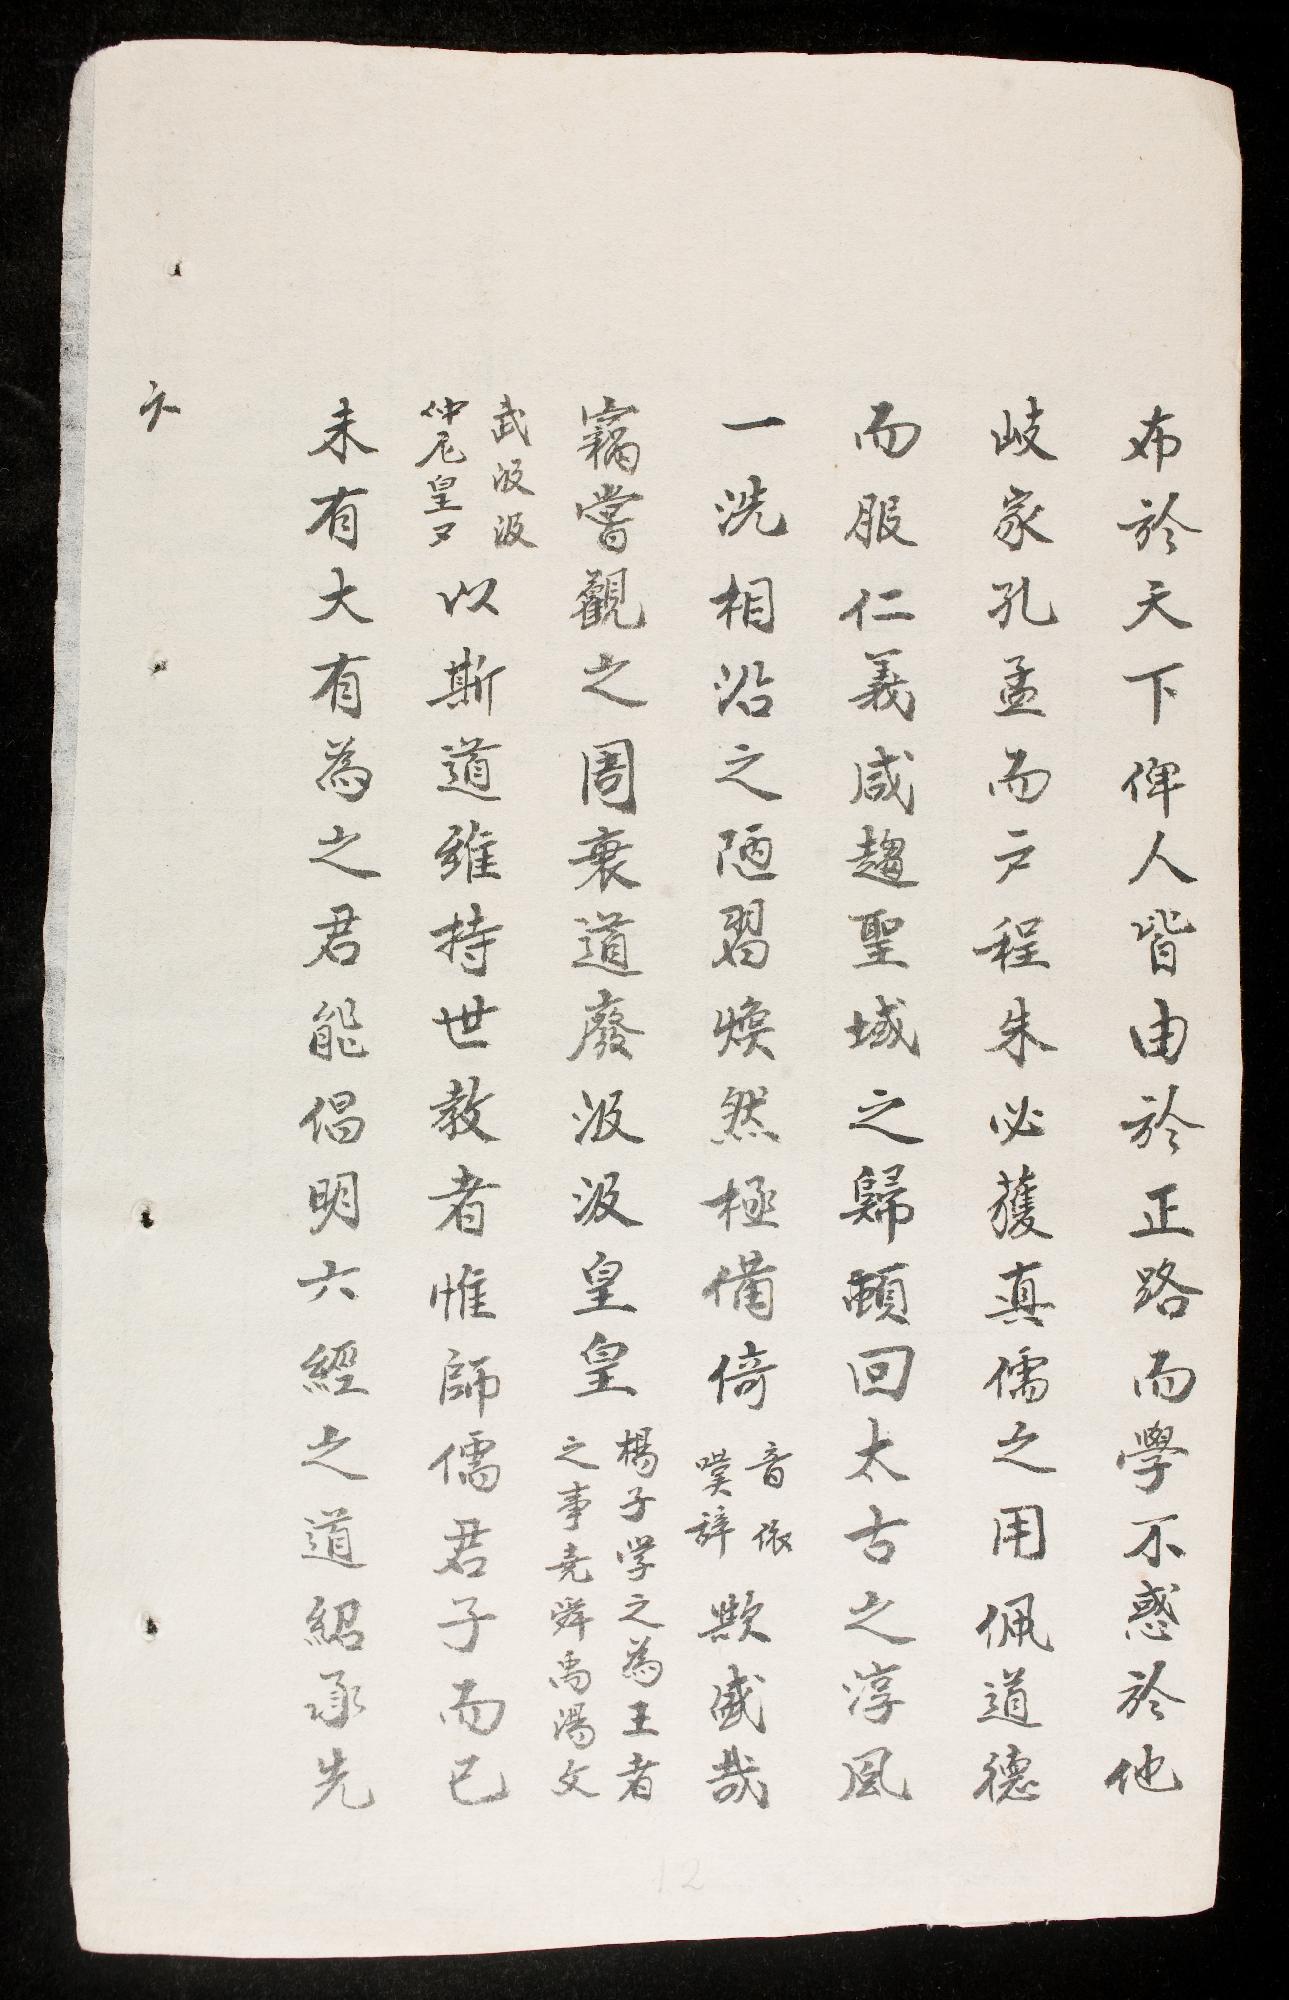 布於天下俾人皆由於正路而學不惑於他
歧家孔孟而戶程朱必獲真儒之用佩道德
而服仁義咸趨聖域之歸頓回太古之淳風
一洗相沿之陋習煥然極備倚
音依
嘆辞
歟盛哉
竊嘗觀之周衰道廢汲汲皇皇
楊子学之為王者
之事尭舜禹湯文
武汲汲
仲尼皇又
以斯道維持世教者惟師儒君子而已
未有大有為之君能倡明六經之道紹承先
12